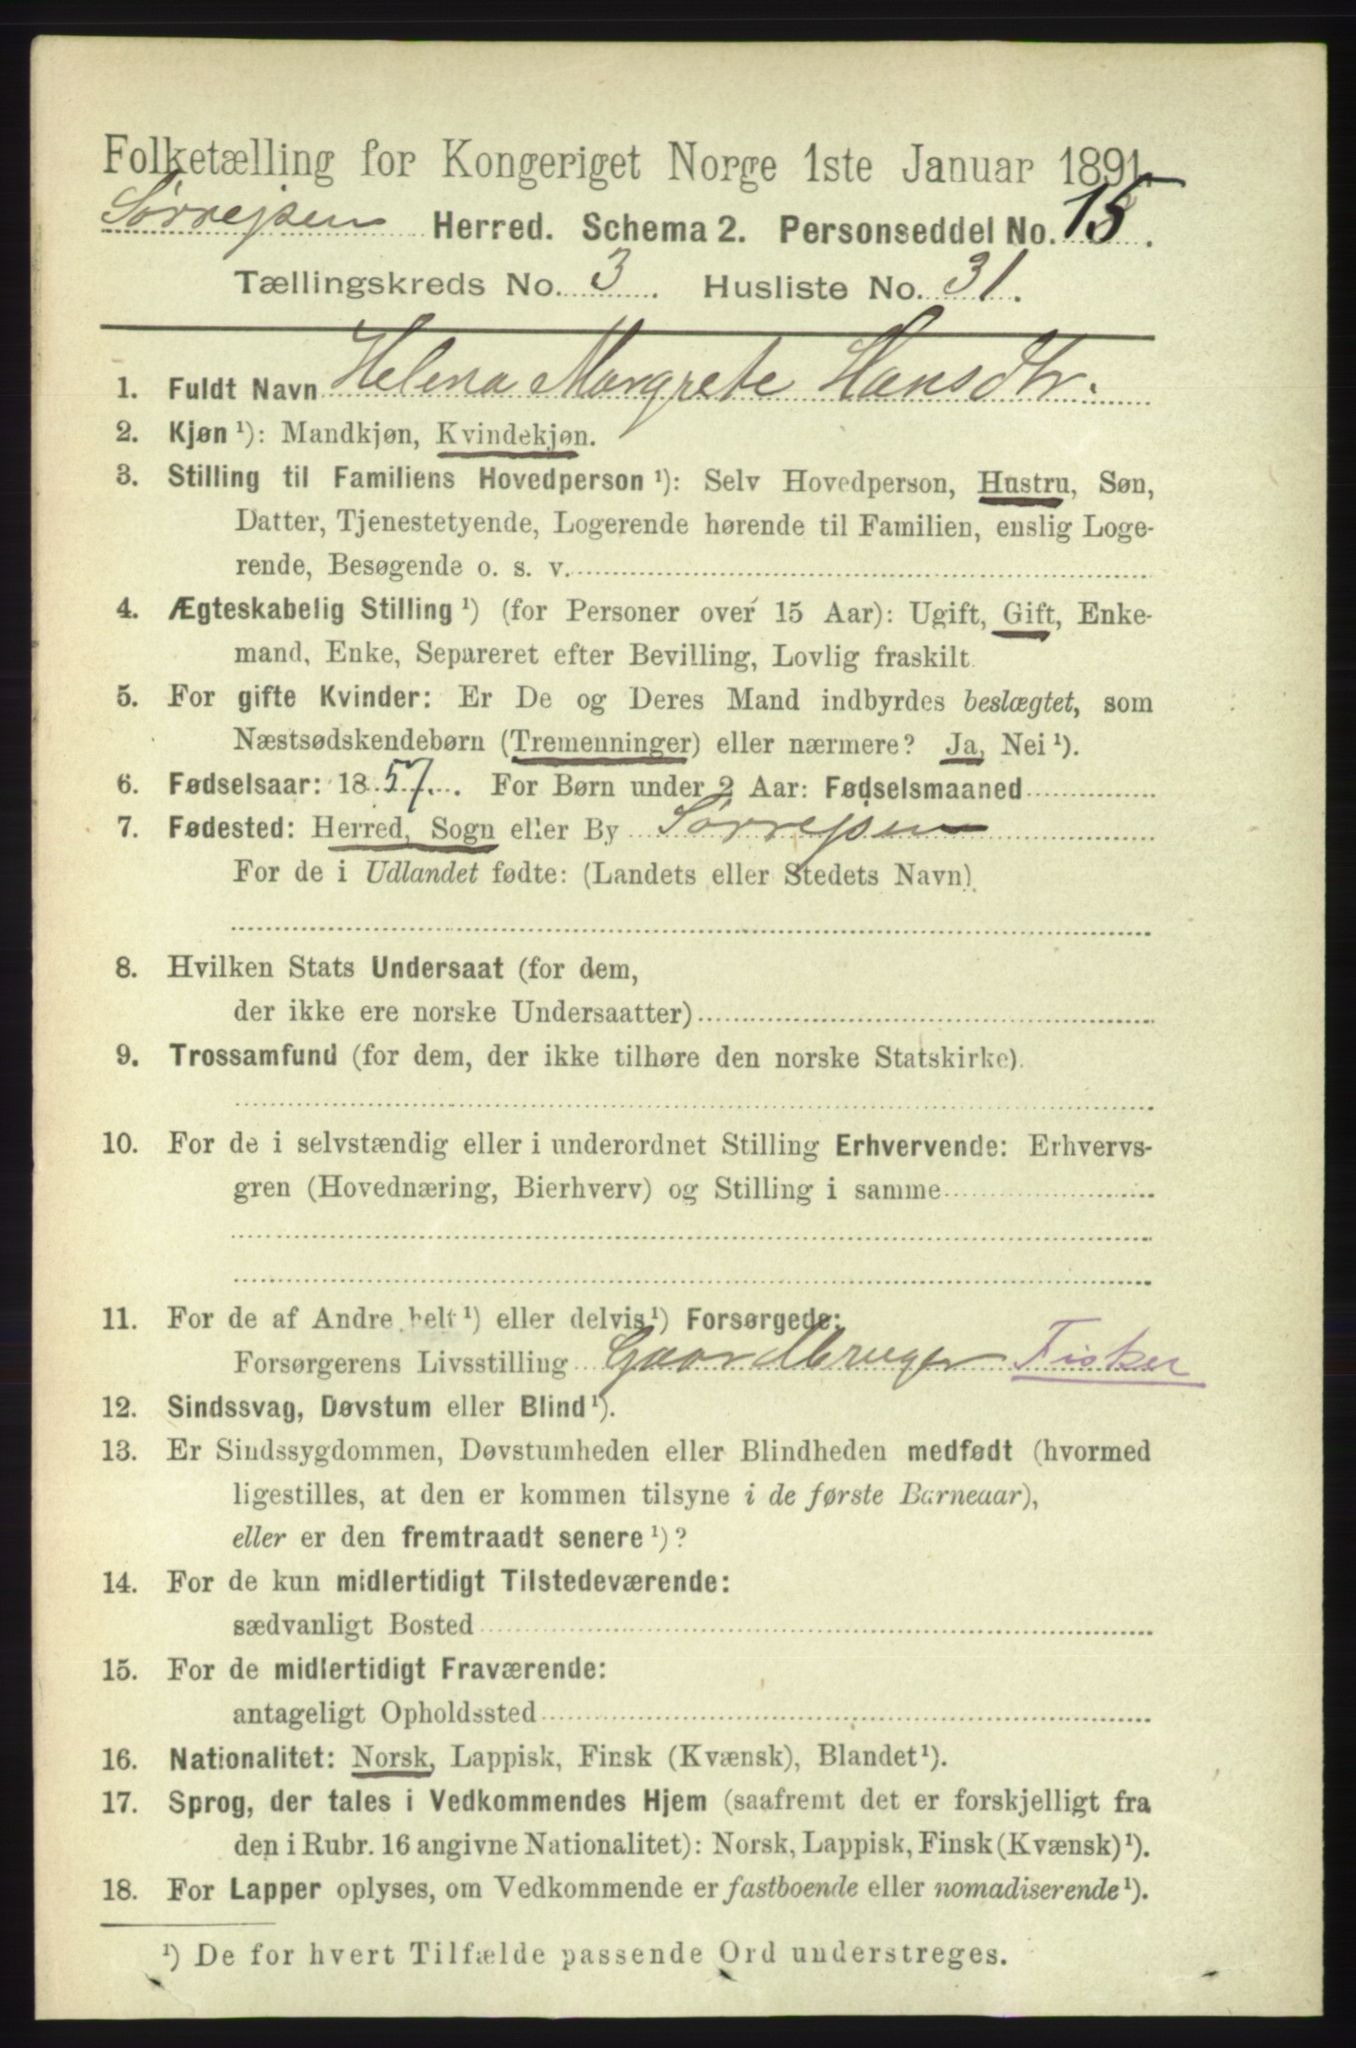 Folketælling for Kongeriget Norge 1ste Januar 1891.
Sørrejsen Herred. Schema 2. Personseddel No. 15.
Tællingskreds No. 3. Husliste No. 31.
1. Fuldt Navn Helena Margrete Hansdtr.
2. Kjøn ¹): Mandkjøn, Kvindekjøn.
3. Stilling til Familiens Hovedperson ¹): Selv Hovedperson, Hustru, Søn,
Datter, Tjenestetyende, Logerende hørende til Familien, enslig Loge-
rende, Besøgende o. s. v.
4. Ægteskabelig Stilling ¹) (for Personer over 15 Aar): Ugift, Gift, Enke-
mand, Enke, Separeret efter Bevilling, Lovlig fraskilt.
5. For gifte Kvinder: Er De og Deres Mand indbyrdes beslægtet, som
Næstsødskendebørn (Tremenninger) eller nærmere? Ja, Nei ¹).
6. Fødselsaar: 1857. For Børn under 2 Aar: Fødselsmaaned
7. Fødested: Herred, Sogn eller By Sørrejsen
For de i Udlandet fødte: (Landets eller Stedets Navn)
8. Hvilken Stats Undersaat (for dem,
der ikke ere norske Undersaatter)
9. Trossamfund (for dem, der ikke tilhøre den norske Statskirke).
10. For de i selvstændig eller i underordnet Stilling Erhvervende: Erhvervs-
gren (Hovednæring, Bierhverv) og Stilling i samme
11. For de af Andre helt ¹) eller delvis ¹) Forsørgede:
Forsørgerens Livsstilling Gaardbruger Fisker
12. Sindssvag, Døvstum eller Blind ¹).
13. Er Sindssygdommen, Døvstumheden eller Blindheden medfødt (hvormed
ligestilles, at den er kommen tilsyne i de første Barneaar),
eller er den fremtraadt senere ¹)?
14. For de kun midlertidigt Tilstedeværende:
sædvanligt Bosted
15. For de midlertidigt Fraværende:
antageligt Opholdssted
16. Nationalitet: Norsk, Lappisk, Finsk (Kvænsk), Blandet ¹).
17. Sprog, der tales i Vedkommendes Hjem (saafremt det er forskjelligt fra
den i Rubr. 16 angivne Nationalitet): Norsk, Lappisk, Finsk (Kvænsk) ¹).
18. For Lapper oplyses, om Vedkommende er fastboende eller nomadiserende ¹).
¹) De for hvert Tilfælde passende Ord understreges.